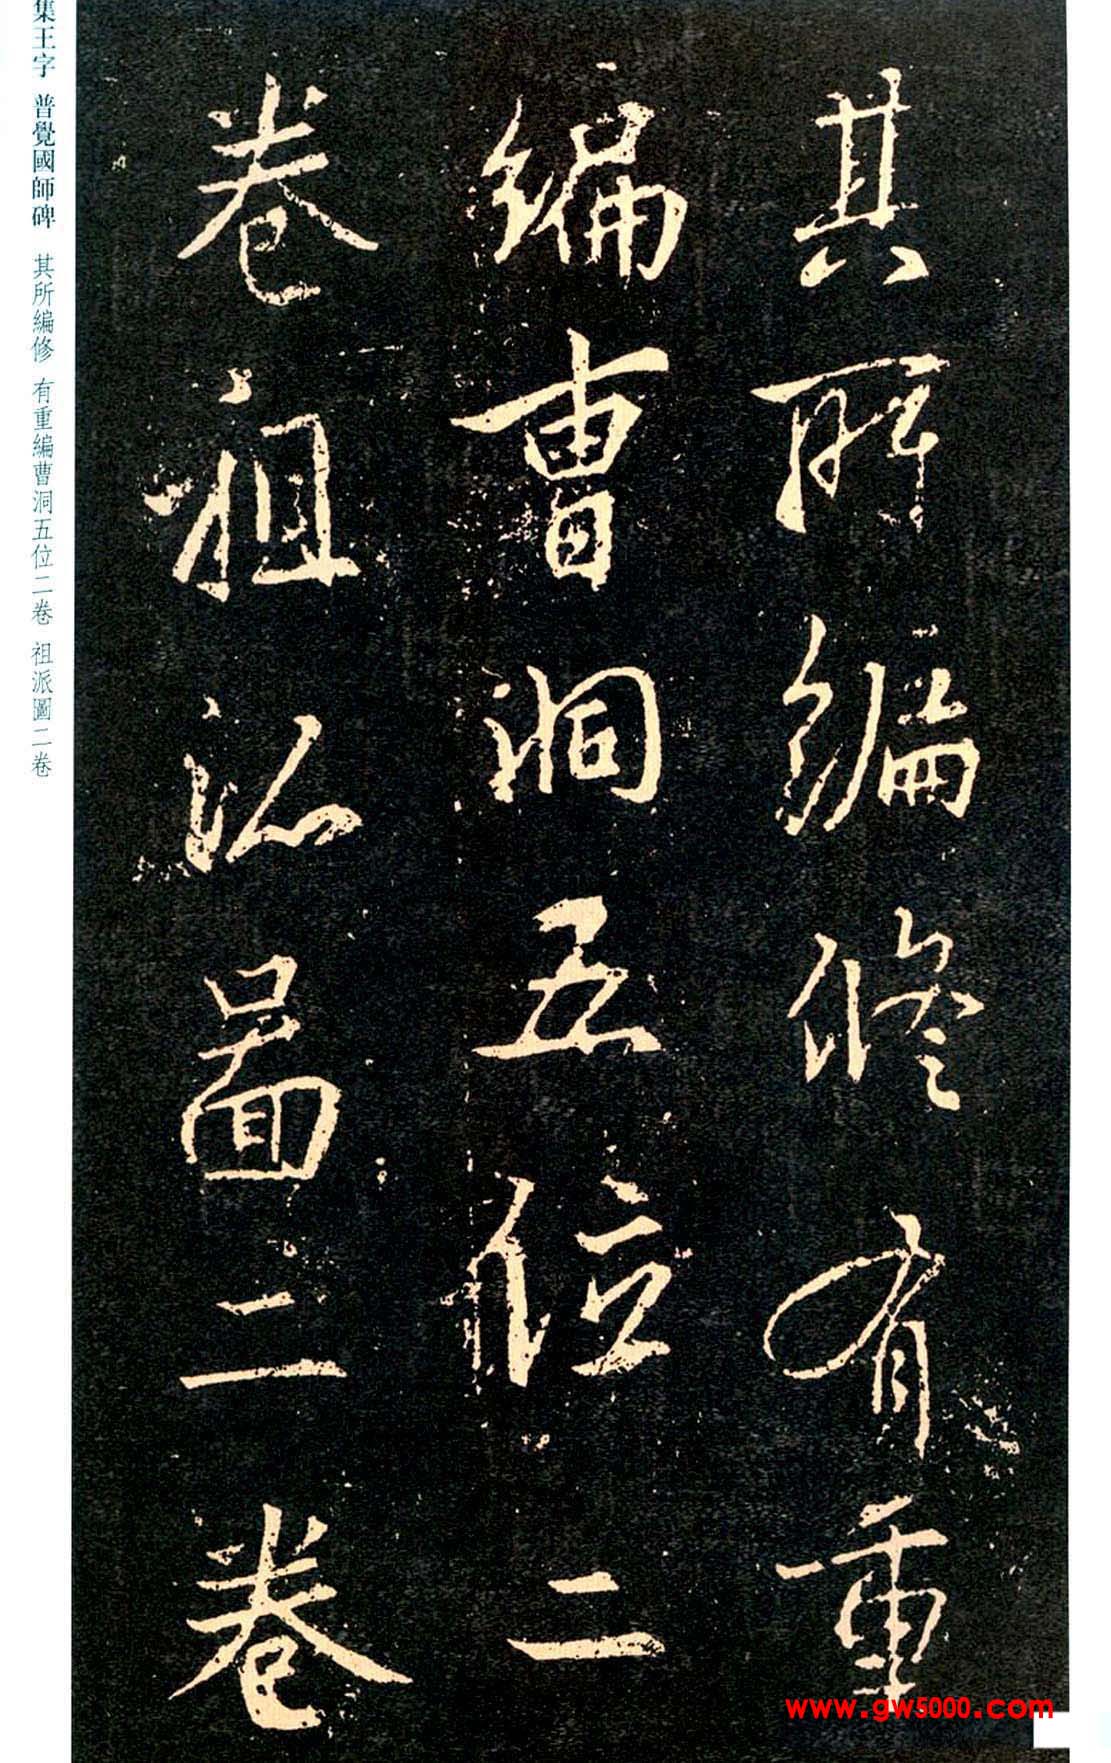 其所編修有重
編曹洞五位二
卷祖派圖二卷
集王字 普覺國師碑 其所編修 有重編曹洞五位二卷 祖派圖二卷
www.gw5000.com